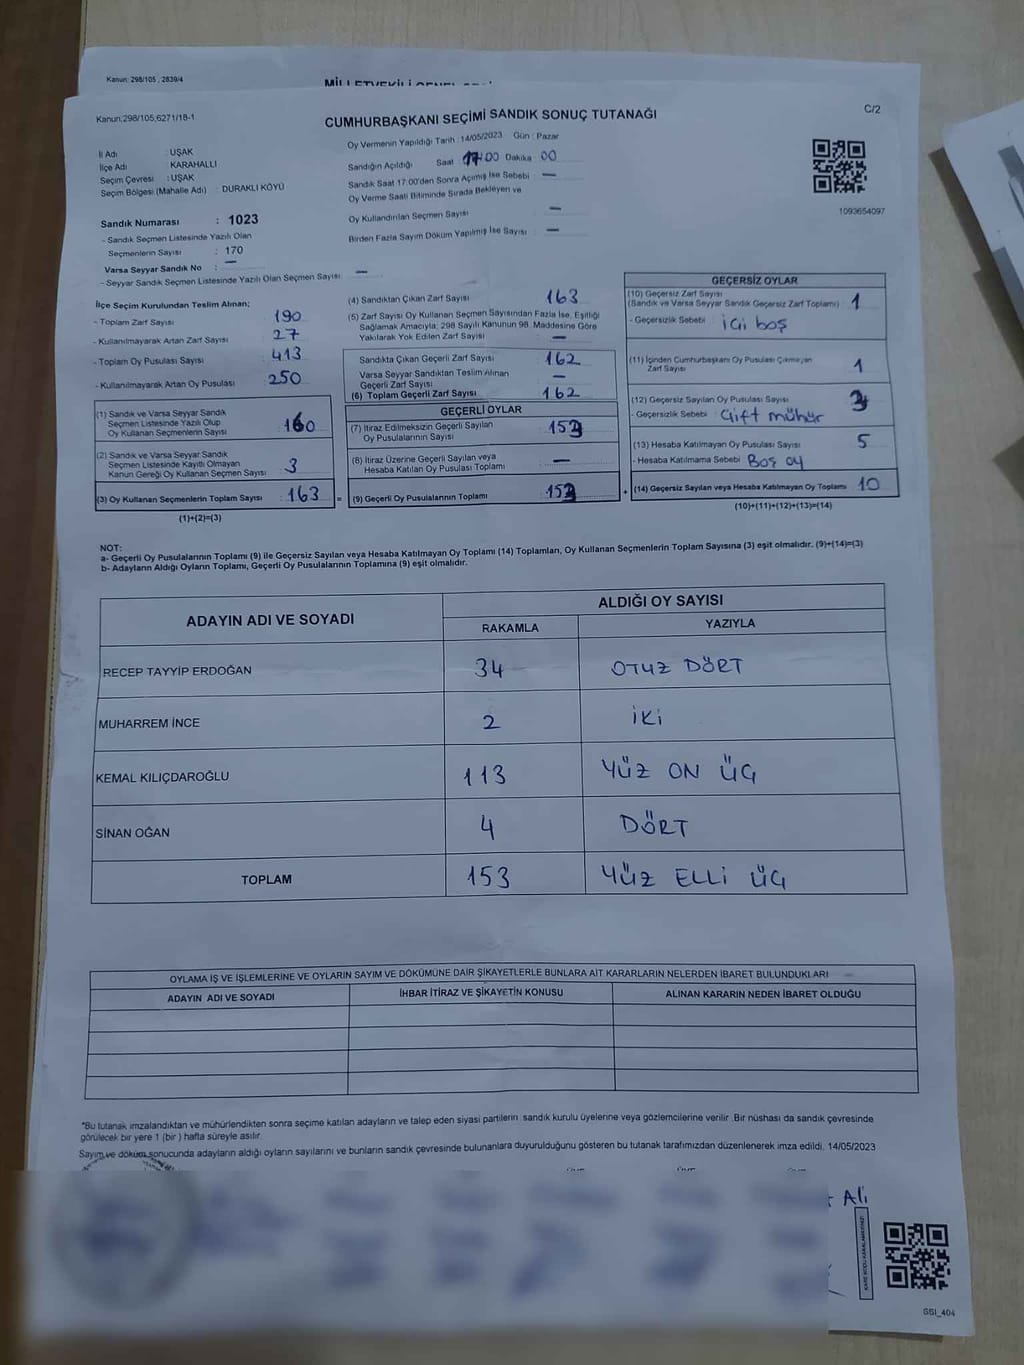 Kanun: 298/105 , 2839/4
Kanun;298/105;6271/18-1
CUMHURBAŞKANI SEÇİMİ SANDIK SONUÇ TUTANAĞI
C/2
İl Adı : UŞAK
İlçe Adı : KARAHALLI
Seçim Çevresi : UŞAK
Seçim Bölgesi (Mahalle Adı) : DURAKLI KÖYÜ
Oy Vermenin Yapıldığı Tarih : 14/05/2023 Gün : Pazar
Sandığın Açıldığı Saat 17:00 Dakika 00
Sandık Saat 17:00'den Sonra Açılmış İse Sebebi : —
Oy Verme Saati Bitiminde Sırada Bekleyen ve
Oy Kullandırılan Seçmen Sayısı : —
Birden Fazla Sayım Döküm Yapılmış İse Sayısı : —
1093654097
Sandık Numarası : 1023
- Sandık Seçmen Listesinde Yazılı Olan
Seçmenlerin Sayısı : 170
Varsa Seyyar Sandık No : —
- Seyyar Sandık Seçmen Listesinde Yazılı Olan Seçmen Sayısı : —
İlçe Seçim Kurulundan Teslim Alınan;
- Toplam Zarf Sayısı : 190
- Kullanılmayarak Artan Zarf Sayısı : 27
- Toplam Oy Pusulası Sayısı : 413
- Kullanılmayarak Artan Oy Pusulası : 250
(1) Sandık ve Varsa Seyyar Sandık
Seçmen Listesinde Yazılı Olup
Oy Kullanan Seçmenlerin Sayısı : 160
(2) Sandık ve Varsa Seyyar Sandık
Seçmen Listesinde Kayıtlı Olmayan
Kanun Gereği Oy Kullanan Seçmen Sayısı : 3
(3) Oy Kullanan Seçmenlerin Toplam Sayısı : 163
(1)+(2)=(3)
(4) Sandıktan Çıkan Zarf Sayısı : 163
(5) Zarf Sayısı Oy Kullanan Seçmen Sayısından Fazla İse, Eşitliği
Sağlamak Amacıyla; 298 Sayılı Kanunun 98. Maddesine Göre
Yakılarak Yok Edilen Zarf Sayısı : —
Sandıkta Çıkan Geçerli Zarf Sayısı : 162
Varsa Seyyar Sandıktan Teslim Alınan
Geçerli Zarf Sayısı : —
(6) Toplam Geçerli Zarf Sayısı : 162
GEÇERLİ OYLAR
(7) İtiraz Edilmeksizin Geçerli Sayılan
Oy Pusulalarının Sayısı : 153
(8) İtiraz Üzerine Geçerli Sayılan veya
Hesaba Katılan Oy Pusulası Toplamı : —
= (9) Geçerli Oy Pusulalarının Toplamı : 153
GEÇERSİZ OYLAR
(10) Geçersiz Zarf Sayısı
(Sandık ve Varsa Seyyar Sandık Geçersiz Zarf Toplamı) : 1
- Geçersizlik Sebebi : içi boş
(11) İçinden Cumhurbaşkanı Oy Pusulası Çıkmayan
Zarf Sayısı : 1
(12) Geçersiz Sayılan Oy Pusulası Sayısı : 3
- Geçersizlik Sebebi : Çift mühür
(13) Hesaba Katılmayan Oy Pusulası Sayısı : 5
- Hesaba Katılmama Sebebi : Boş oy
+ (14) Geçersiz Sayılan veya Hesaba Katılmayan Oy Toplamı : 10
(10)+(11)+(12)+(13)=(14)
NOT:
a- Geçerli Oy Pusulalarının Toplamı (9) ile Geçersiz Sayılan veya Hesaba Katılmayan Oy Toplamı (14) Toplamları, Oy Kullanan Seçmenlerin Toplam Sayısına (3) eşit olmalıdır. (9)+(14)=(3)
b- Adayların Aldığı Oyların Toplamı, Geçerli Oy Pusulalarının Toplamına (9) eşit olmalıdır.
ADAYIN ADI VE SOYADI
ALDIĞI OY SAYISI
RAKAMLA YAZIYLA
RECEP TAYYİP ERDOĞAN 34 OTUZ DÖRT
MUHARREM İNCE 2 İKİ
KEMAL KILIÇDAROĞLU 113 YÜZ ON ÜÇ
SİNAN OĞAN 4 DÖRT
TOPLAM 153 YÜZ ELLİ ÜÇ
OYLAMA İŞ VE İŞLEMLERİNE VE OYLARIN SAYIM VE DÖKÜMÜNE DAİR ŞİKAYETLERLE BUNLARA AİT KARARLARIN NELERDEN İBARET BULUNDUKLARI
ADAYIN ADI VE SOYADI İHBAR İTİRAZ VE ŞİKAYETİN KONUSU ALINAN KARARIN NEDEN İBARET OLDUĞU
*Bu tutanak imzalandıktan ve mühürlendikten sonra seçime katılan adayların ve talep eden siyasi partilerin sandık kurulu üyelerine veya gözlemcilerine verilir. Bir nüshası da sandık çevresinde
görülecek bir yere 1 (bir ) hafta süreyle asılır.
Sayım ve döküm sonucunda adayların aldığı oyların sayılarını ve bunların sandık çevresinde bulunanlara duyurulduğunu gösteren bu tutanak tarafımızdan düzenlenerek imza edildi. 14/05/2023
Ali
SSI_404